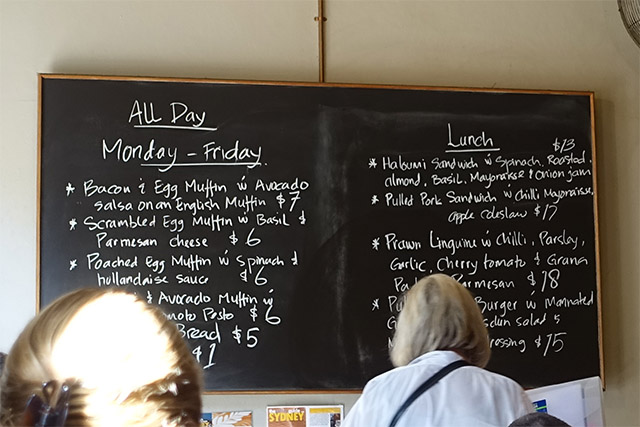 All Day
Monday - Friday
* Bacon & Egg Muffin w Avocado
salsa on an English Muffin $7
* Scrambled Egg Muffin w Basil &
Parmesan cheese $6
* Poached Egg Muffin w Spinach &
hollandaise sauce $6
& Avocado Muffin w
Pesto $6
Bread $5
$1
Lunch
$13
* Haloumi Sandwich w Spinach, Roasted
almond, Basil, Mayonaise & Onion jam
* Pulled Pork Sandwich w Chilli Mayonaise,
apple coleslaw $17
* Prawn Linguine w Chilli, Parsley,
Garlic, Cherry tomato & Grana
Parmesan $18
* Burger w Marinated
salad
$15
SYDNEY